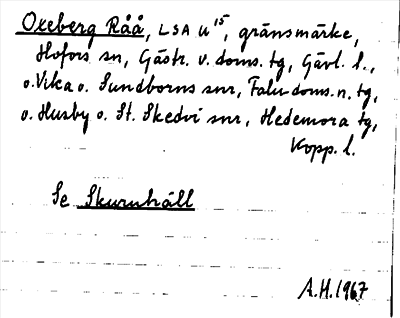 Oxeberg Råå, LSA U 15, gränsmärke,
Hofors sn, Gästr. v. doms. tg, Gävl. l.,
o. Vika o. Sundborns snr, Falu doms. n. tg,
o. Husby o. St. Skedvi snr, Hedemora tg,
Kopp. l.
Se Skuruhäll
A.H. 1967